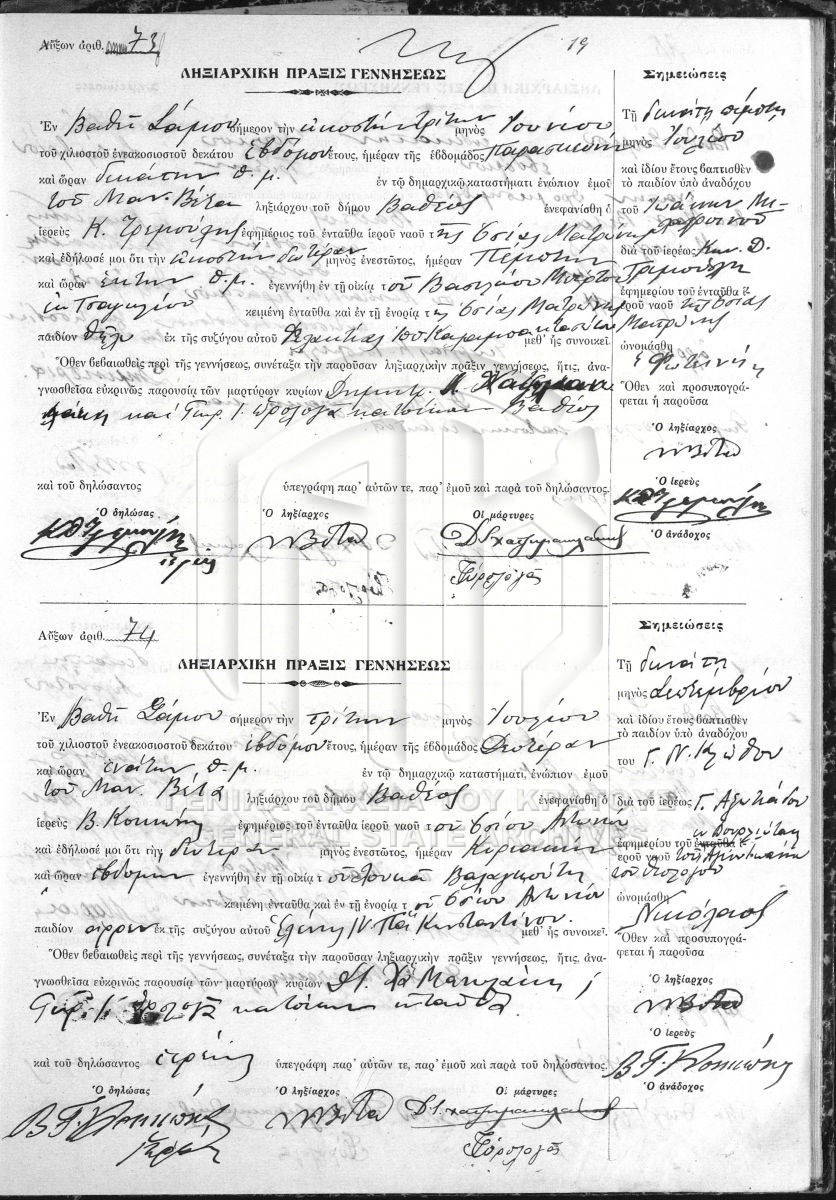 Αὔξων ἀριθ. 73
19
ΛΗΞΙΑΡΧΙΚΗ ΠΡΑΞΙΣ ΓΕΝΝΗΣΕΩΣ
Ἐν Βαθεῖ Σάμου σήμερον τὴν εἰκοστήν τρίτην μηνὸς Ἰουνίου
τοῦ χιλιοστοῦ ἐνεακοσιοστοῦ δεκάτου ἑβδόμου ἔτους, ἡμέραν τῆς ἑβδομάδος Παρασκευήν
καὶ ὥραν δεκάτην π.μ. ἐν τῷ δημαρχικῷ καταστήματι ἐνώπιον ἐμοῦ
τοῦ Μαν. Βέτα ληξιάρχου τοῦ δήμου Βαθέος ἐνεφανίσθη ὁ
ἱερεὺς Κ. Τρεμούλης ἐφημέριος τοῦ ἐνταῦθα ἱεροῦ ναοῦ τῆς Ὁσίας Ματρώνης
καὶ ἐδήλωσέ μοι ὅτι τὴν εἰκοστήν δευτέραν μηνὸς ἐνεστῶτος, ἡμέραν Πέμπτην
καὶ ὥραν ἕκτην π.μ. ἐγεννήθη ἐν τῇ οἰκίᾳ τοῦ Βασιλείου
κειμένῃ ἐνταῦθα καὶ ἐν τῇ ἐνορίᾳ τῆς Ὁσίας Ματρώνης
παιδίον θῆλυ ἐκ τῆς συζύγου αὐτοῦ μεθ' ἧς συνοικεῖ.
Ὅθεν βεβαιωθεὶς περὶ τῆς γεννήσεως, συνέταξα τὴν παροῦσαν ληξιαρχικὴν πρᾶξιν γεννήσεως, ἥτις, ἀνα-
γνωσθεῖσα εὐκρινῶς παρουσίᾳ τῶν μαρτύρων κυρίων Δημητρ. Χατζημαν
ωλάκη καί Γεωρ. Ι. Ὡρολογᾶ κατοίκων Βαθέος
καὶ τοῦ δηλώσαντος ὑπεγράφη παρ' αὐτῶν τε, παρ' ἐμοῦ καὶ παρὰ τοῦ δηλώσαντος.
Ὁ δηλώσας Ὁ ληξίαρχος Οἱ μάρτυρες
Κ Δ Τρεμούλης ΜΒέτας Δ Ι χατζημανωλάκης
ἱερεύς Γ Ὡρολογᾶς
Σημειώσεις
Τῇ δεκάτῃ πέμπτῃ
μηνὸς Ἰουλίου
καὶ ἰδίου ἔτους βαπτισθὲν
τὸ παιδίον ὑπὸ ἀναδόχου
τοῦ Ἰωάννου
διὰ τοῦ ἱερέως Κων. Δ.
Τρεμούλη
ἐφημερίου τοῦ ἐνταῦθα ἱ-
εροῦ ναοῦ τῆς Ὁσίας
Ματρώνης
ὠνομάσθη
Φωτεινή
Ὅθεν καὶ προσυπογρά-
φεται ἡ παροῦσα
Ὁ ληξίαρχος
ΜΒέτας
Ὁ ἱερεὺς
Κ Δ Τρεμούλης
Ὁ ἀνάδοχος
Αὔξων ἀριθ. 74
ΛΗΞΙΑΡΧΙΚΗ ΠΡΑΞΙΣ ΓΕΝΝΗΣΕΩΣ
Ἐν Βαθεῖ Σάμου σήμερον τὴν τρίτην μηνὸς Ἰουλίου
τοῦ χιλιοστοῦ ἐνεακοσιοστοῦ δεκάτου ἑβδόμου ἔτους, ἡμέραν τῆς ἑβδομάδος Δευτέραν
καὶ ὥραν ἐνάτην π.μ. ἐν τῷ δημαρχικῷ καταστήματι, ἐνώπιον ἐμοῦ
τοῦ Μαν. Βέτα ληξιάρχου τοῦ δήμου Βαθέος ἐνεφανίσθη ὁ
ΓΕΝΙΚΑ ΑΡΧΕΙΑ ΤΟΥ ΚΡΑΤΟΥΣ
ἱερεὺς Β. Κοκκώνης ἐφημέριος τοῦ ἐνταῦθα ἱεροῦ ναοῦ τοῦ Ὁσίου Ἀντωνίου
GENERAL STATE ARCHIVES
καὶ ἐδήλωσέ μοι ὅτι τὴν δευτέραν μηνὸς ἐνεστῶτος, ἡμέραν Κυριακήν
καὶ ὥραν ἑβδόμην ἐγεννήθη ἐν τῇ οἰκίᾳ τοῦ
κειμένῃ ἐνταῦθα καὶ ἐν τῇ ἐνορίᾳ τοῦ Ὁσίου Ἀντωνίου
παιδίον ἄρρεν ἐκ τῆς συζύγου αὐτοῦ Ἑλένης Ν. Παπᾶ Κωνσταντίνου. μεθ' ἧς συνοικεῖ.
Ὅθεν βεβαιωθεὶς περὶ τῆς γεννήσεως, συνέταξα τὴν παροῦσαν ληξιαρχικὴν πρᾶξιν γεννήσεως, ἥτις, ἀνα-
γνωσθεῖσα εὐκρινῶς παρουσίᾳ τῶν μαρτύρων κυρίων Δ. Ι. Χ''Μανωλάκη
Γεωρ. Ι. Ὡρολογᾶ κατοίκων ἐνταῦθα
καὶ τοῦ δηλώσαντος ἱερέως ὑπεγράφη παρ' αὐτῶν τε, παρ' ἐμοῦ καὶ παρὰ τοῦ δηλώσαντος.
Ὁ δηλώσας Ὁ ληξίαρχος Οἱ μάρτυρες
Β Γ. Κοκκώνης ΜΒέτας Δ Ι. χατζημανωλάκης
Ἱερεύς Γ Ὡρολογᾶς
Σημειώσεις
Τῇ δεκάτῃ
μηνὸς Σεπτεμβρίου
καὶ ἰδίου ἔτους βαπτισθὲν
τὸ παιδίον ὑπὸ ἀναδόχου
τοῦ Γ. Ν. Κλώθου
διὰ τοῦ ἱερέως Γ.
ἐφημερίου τοῦ ἐνταῦθα ἱ-
εροῦ ναοῦ
ὠνομάσθη
Νικόλαος
Ὅθεν καὶ προσυπογρά-
φεται ἡ παροῦσα
Ὁ ληξίαρχος
ΜΒέτας
Ὁ ἱερεὺς
Β Γ. Κοκκώνης
Ὁ ἀνάδοχος